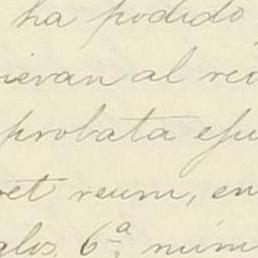 ha podido
nievan al reo
probata eju
ret reum, en
glos 6ª, núm